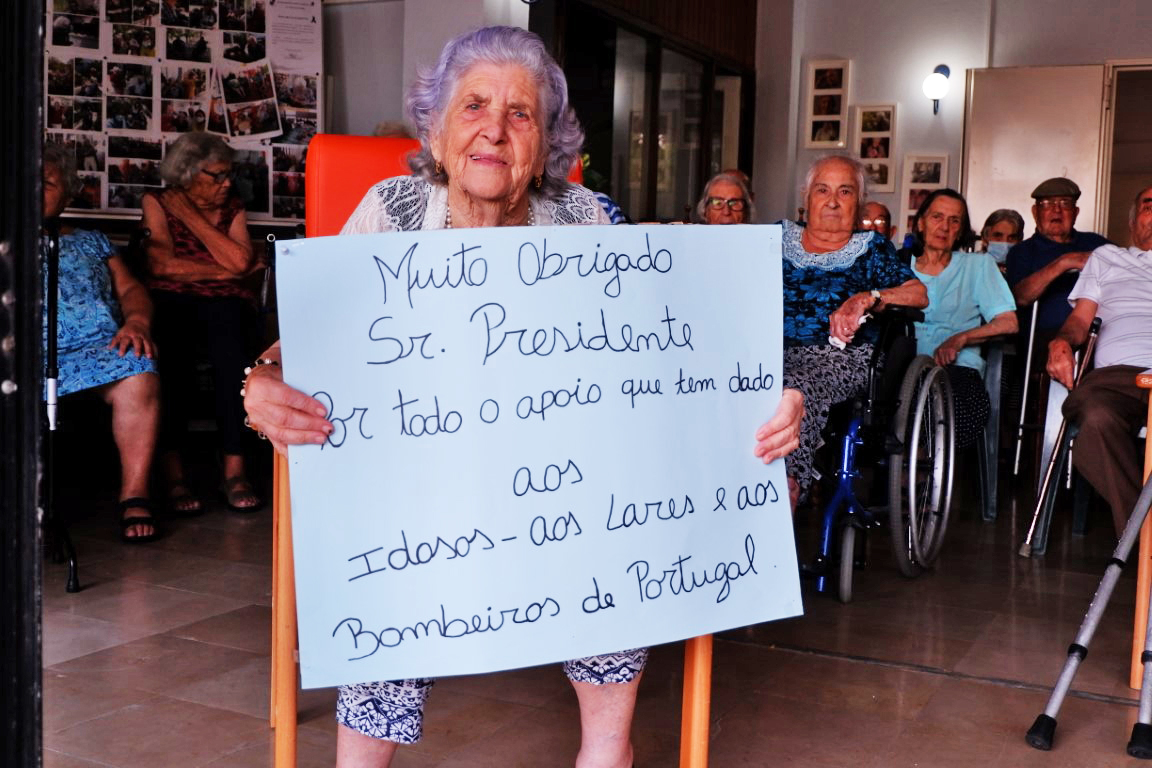 Muito Obrigado
Sr. Presidente
Por todo o apoio que tem dado
aos
Idosos - aos Lares e aos
Bombeiros de Portugal.